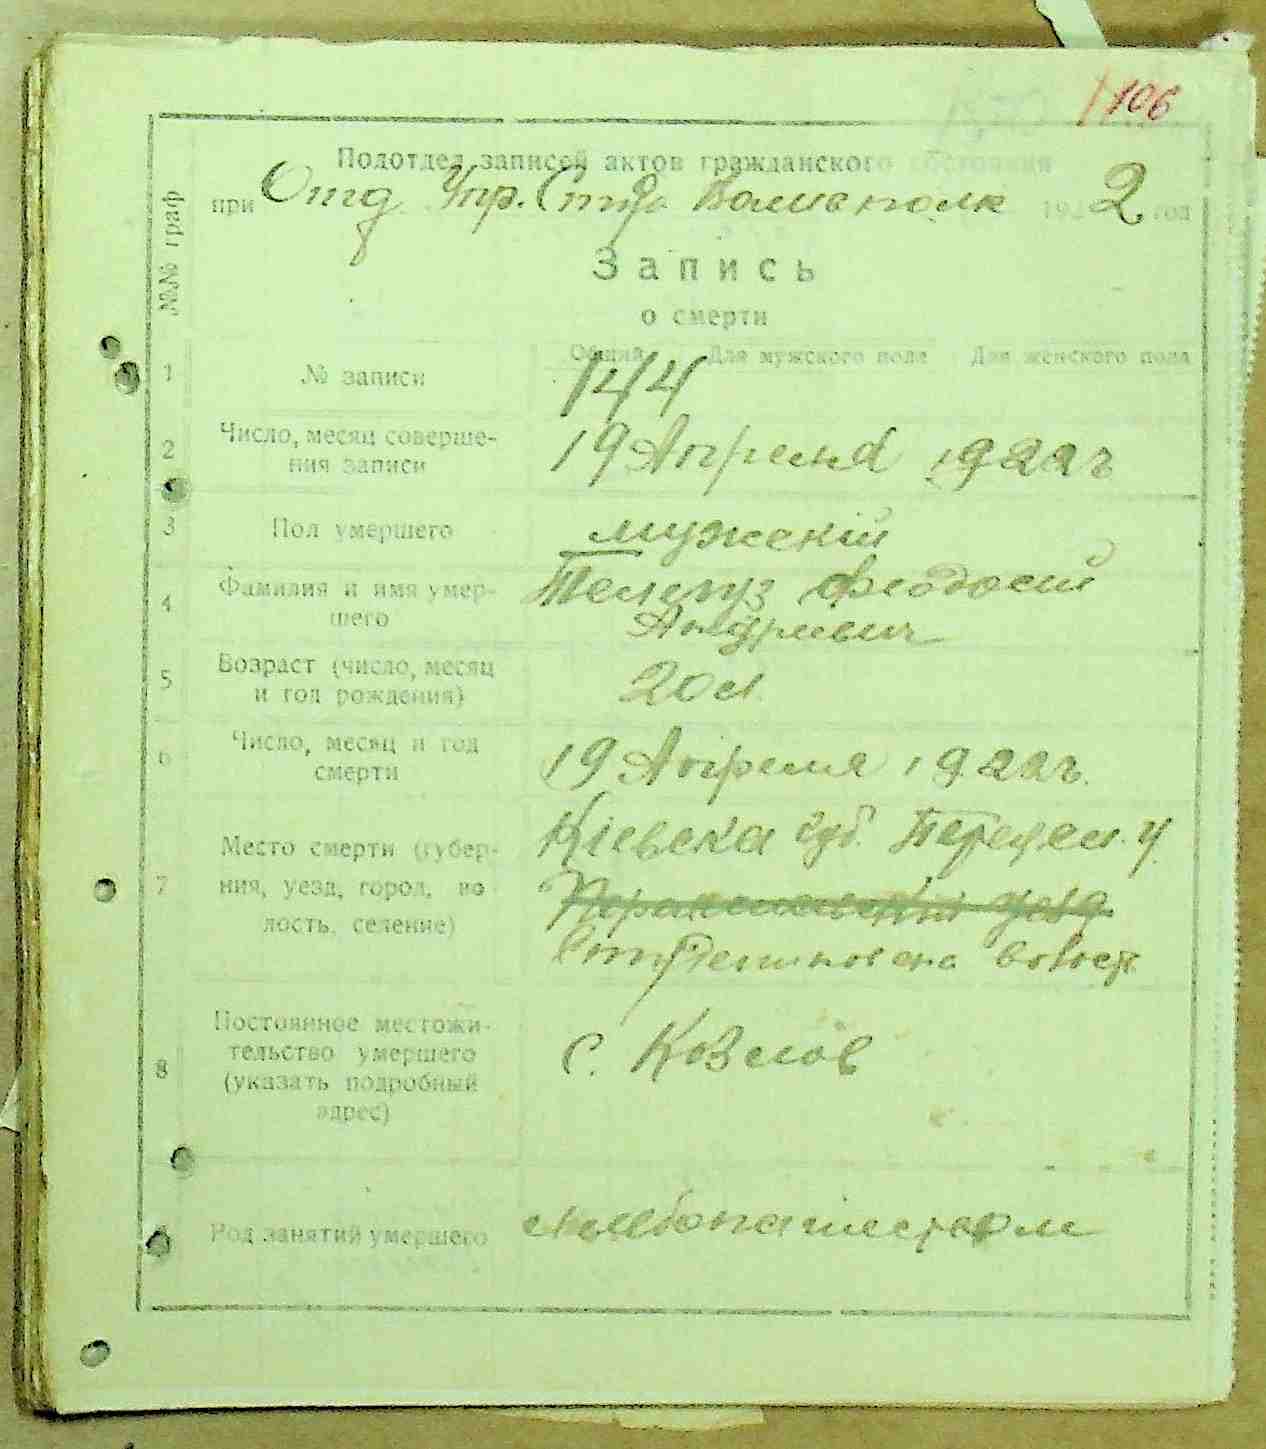 106
Подотдел записей актов гражданского состояния
№№ граф
при Отд. Упр. 192 2 год
Запись
о смерти
Общий Для мужского пола Для женского пола
1 № записи 144
2 Число, месяц соверше-
ния записи 19 Апреля 1922 г
3 Пол умершего мужский
4 Фамилия и имя умер-
шего Телегуз Феодосий
Андреевич
5 Возраст (число, месяц
и год рождения) 20 л.
6 Число, месяц и год
смерти 19 Апреля 1922 г.
7 Место смерти (губер-
ния, уезд, город, во-
лость, селение) Кіевска губ. у.
волост.
8 Постоянное местожи-
тельство умершего
(указать подробный
адрес) с. Козлов
Род занятий умершего